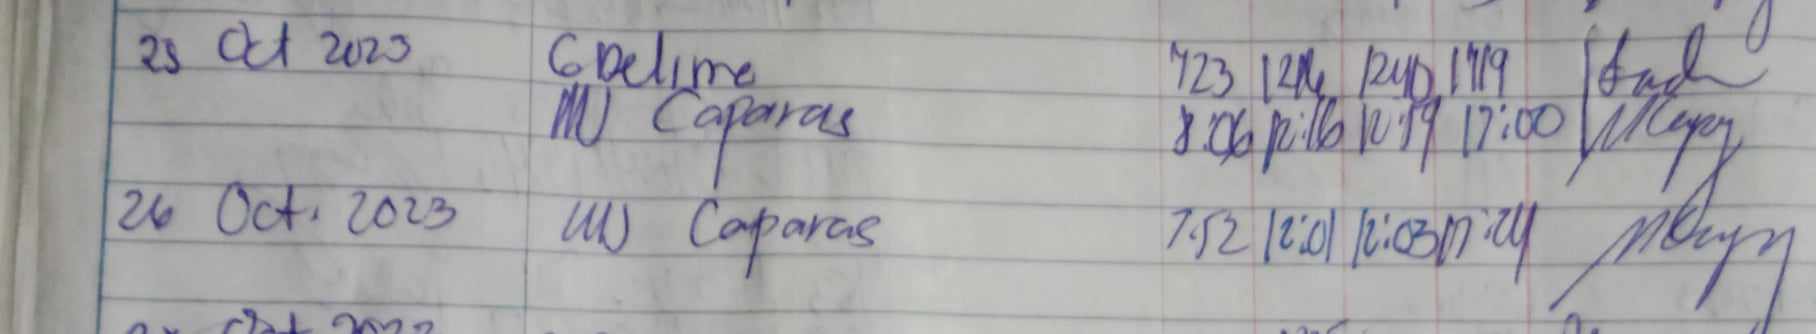 25 Oct 2023 G Delima 723 1214 1240 1719
MJ Caparas 8:06 12:16 12:19 17:00
26 Oct. 2023 MJ Caparas 7:52 12:01 12:03 17:24
Oct 2023